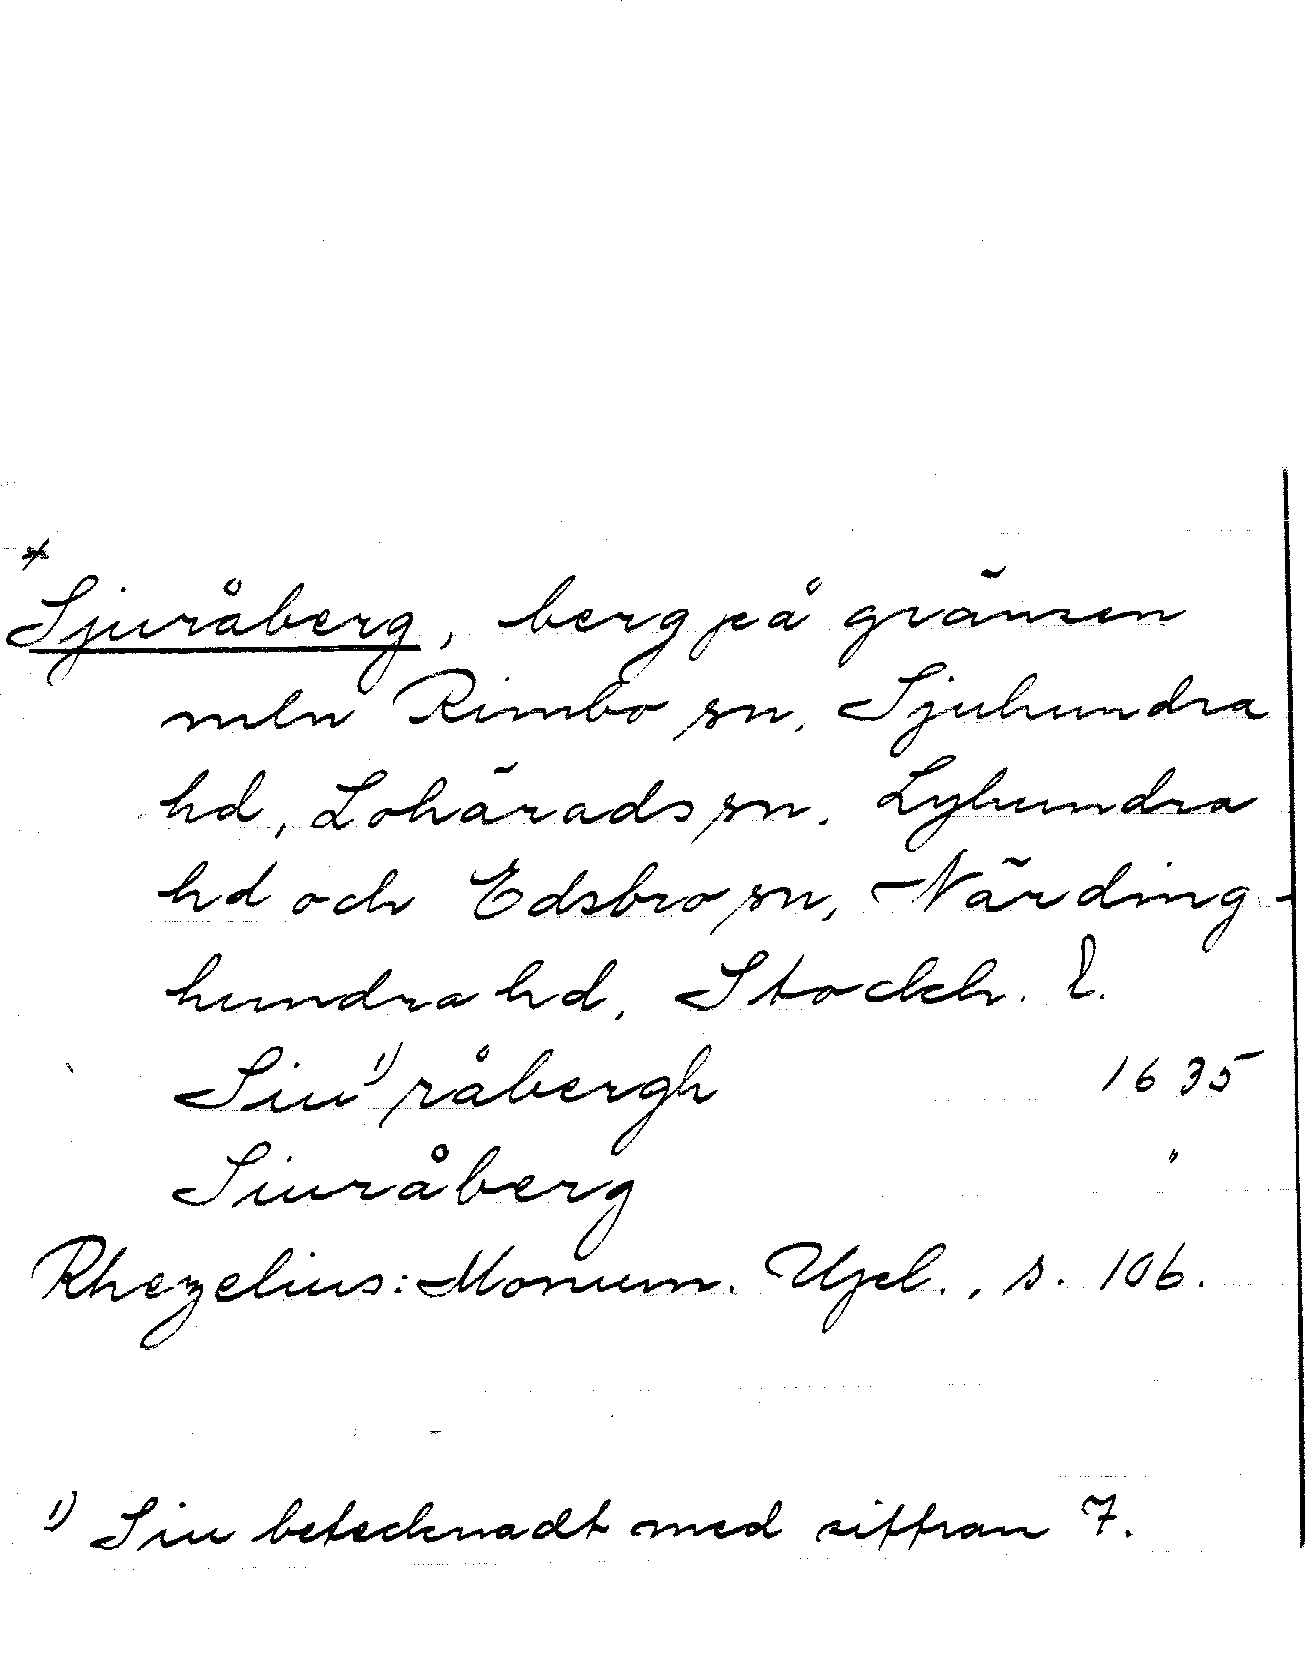 * Sjuråberg, berg på gränsen
mln Rimbo sn, Sjuhundra
hd, Lohärads sn, Lyhundra
hd och Edsbro sn, Närding-
hundra hd, Stockh. l.
Siu¹⁾råbergh 1635
Siuråberg "
Rhezelius: Monum. Upl., s. 106.
¹⁾ Siu betecknadt med siffran 7.